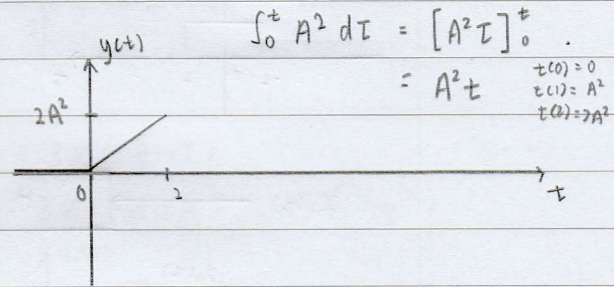 ∫₀ᵗ A² dτ = [A²τ]₀ᵗ .
= A²t
t(0)=0
t(1)=A²
t(2)=2A²
y(t)
2A²
0
2
t